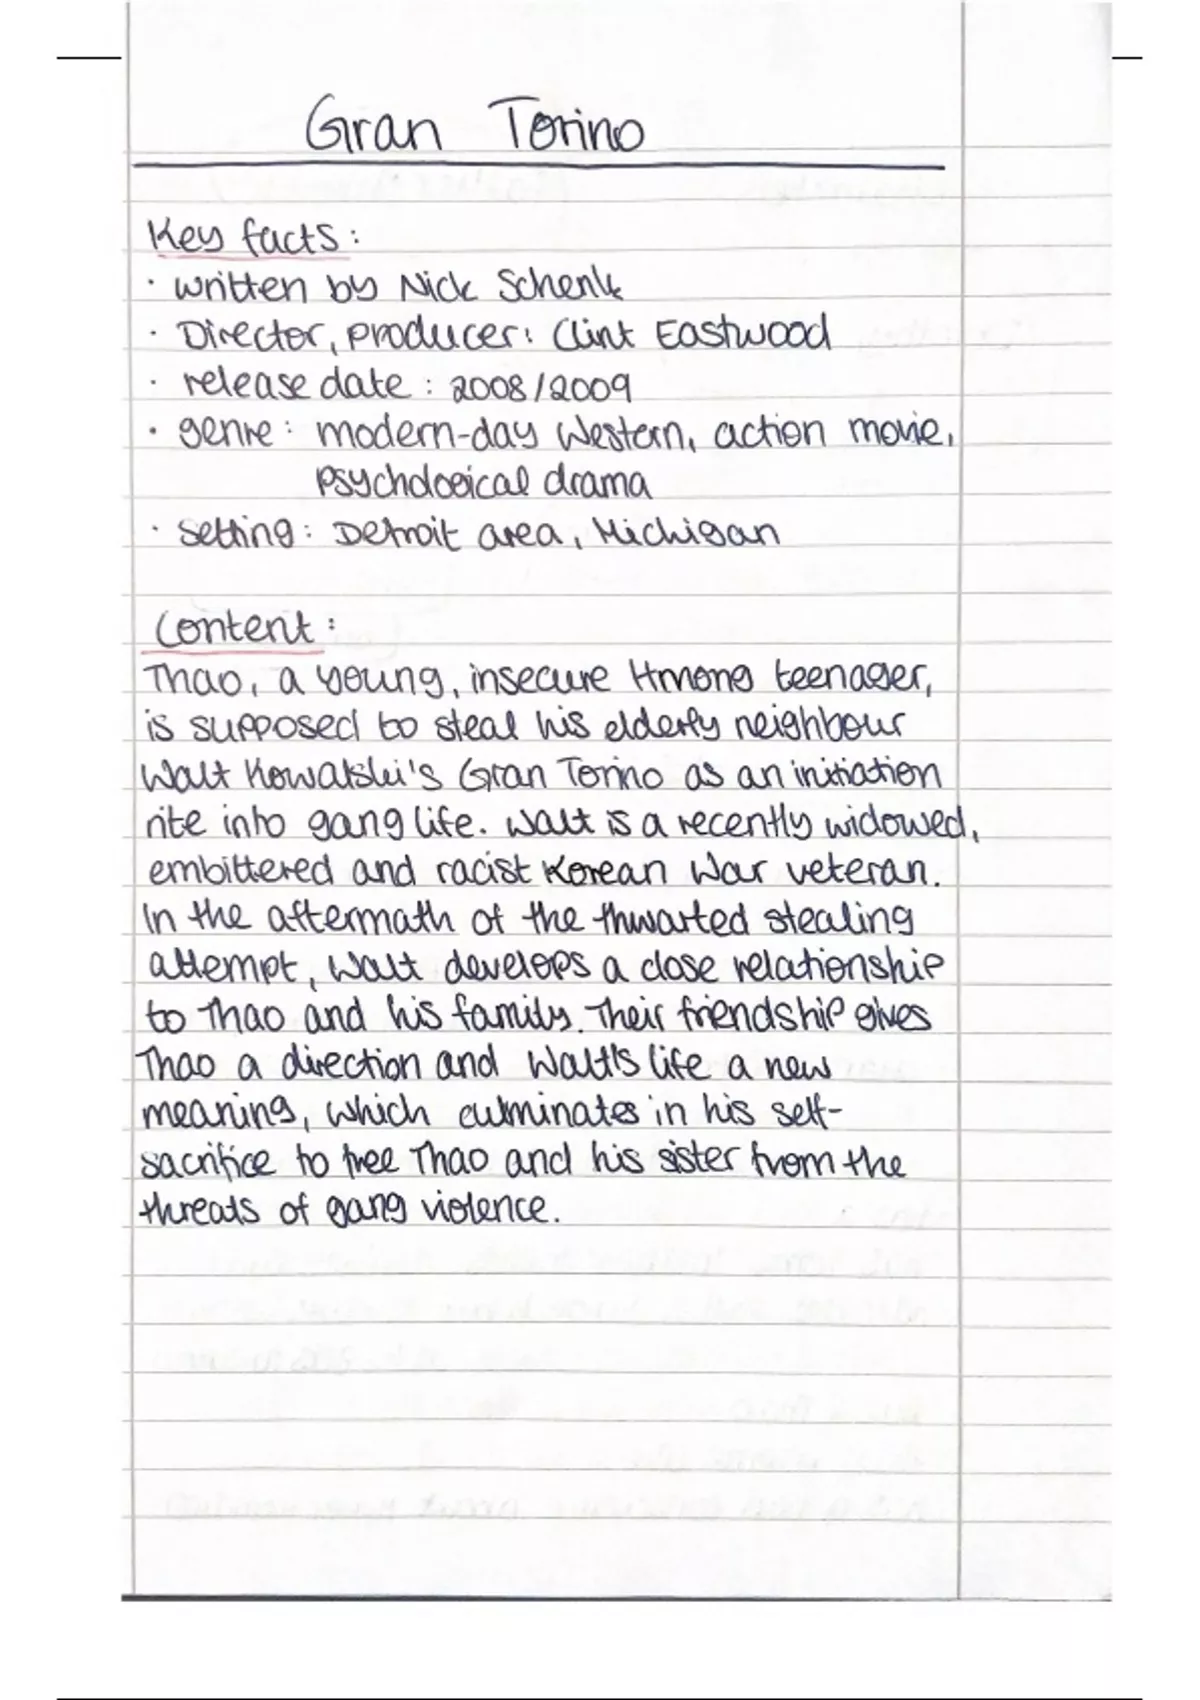 Gran Torino
Key facts:
· written by Nick Schenk
· Director, producer: Clint Eastwood
· release date: 2008/2009
· genre: modern-day Western, action movie,
psychological drama
· setting: Detroit area, Michigan
Content:
Thao, a young, insecure Hmong teenager,
is supposed to steal his elderly neighbour
Walt Kowalski's Gran Torino as an initiation
rite into gang life. Walt is a recently widowed,
embittered and racist Korean War veteran.
In the aftermath of the thwarted stealing
attempt, Walt develops a close relationship
to Thao and his family. Their friendship gives
Thao a direction and Walt's life a new
meaning, which culminates in his self-
sacrifice to free Thao and his sister from the
threats of gang violence.